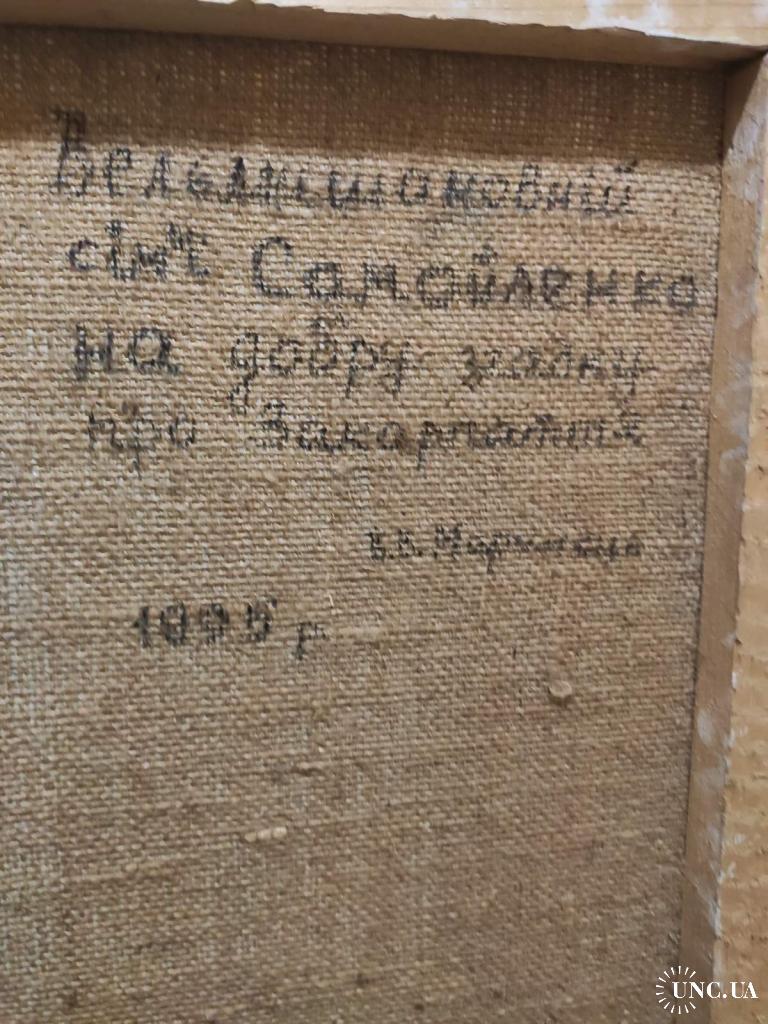 Вельмишановній
сім'ї Самойленко
на добру згадку
про Закарпаття
1995 р.
UNC.UA